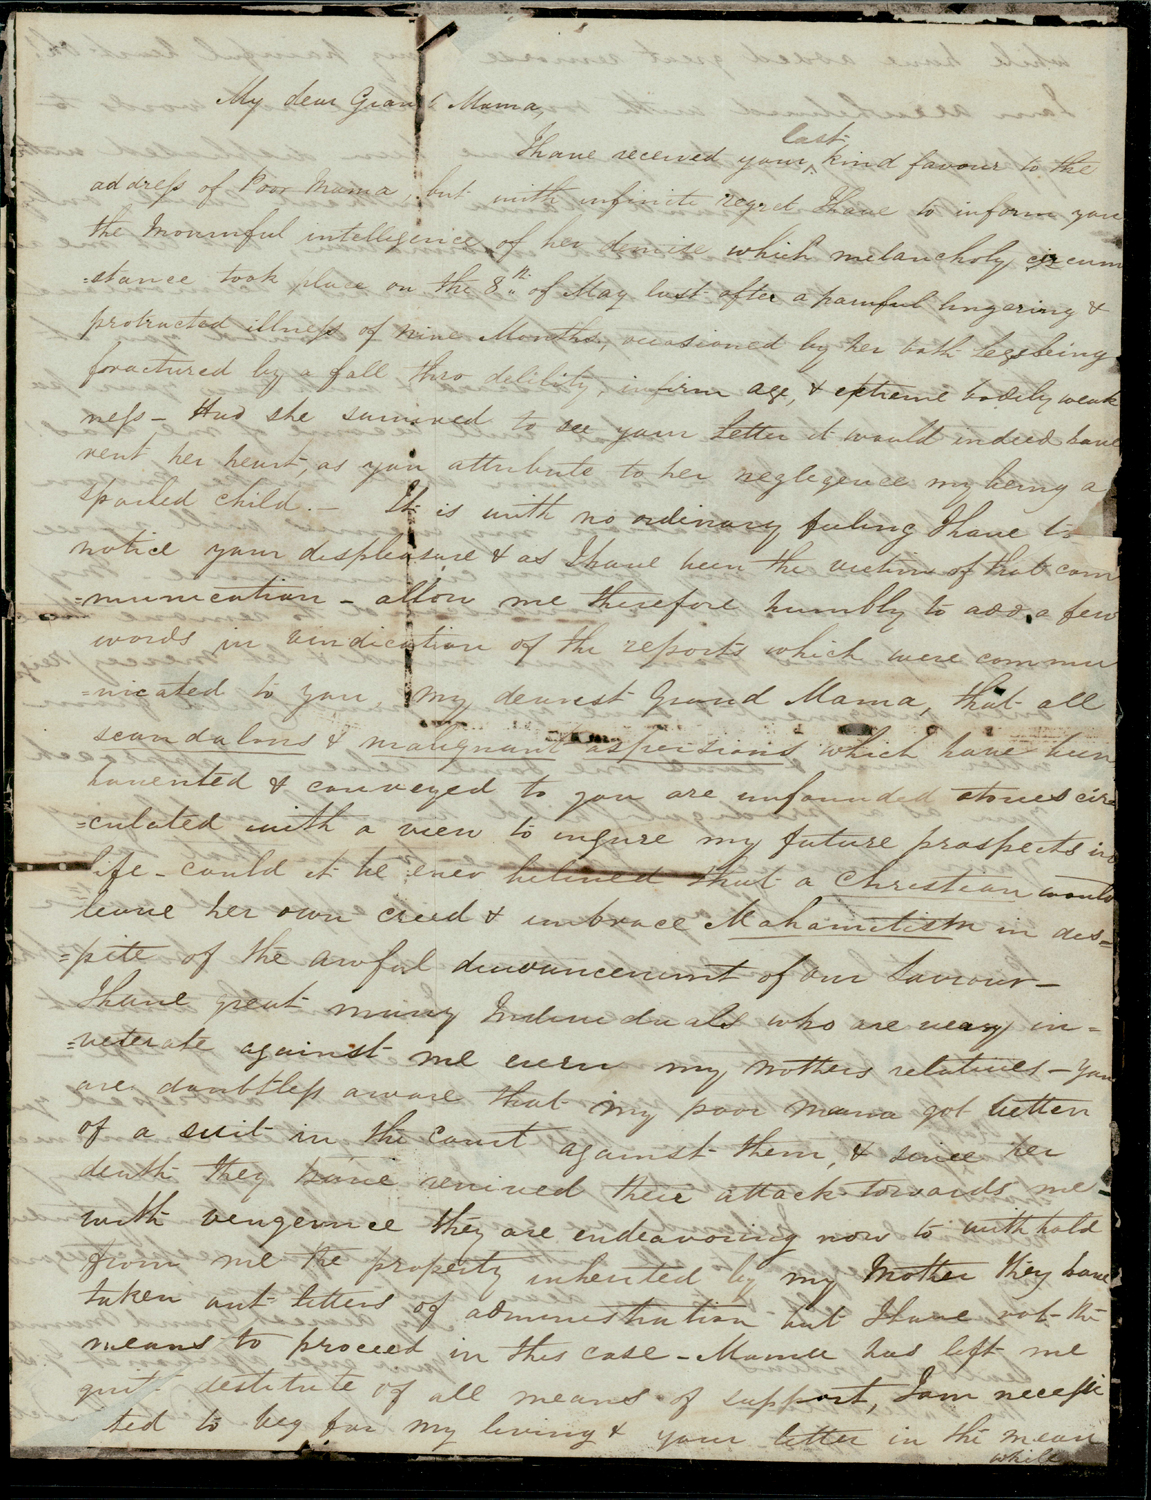 My dear Grand Mama,
I have received your last kind favour to the
address of Poor Mama, but with infinite regret I have to inform you
the Mournful intelligence of her demise which melancholy circum
=stance took place on the 8th of May last after a painful lingering &
protracted illness of nine Months, occasioned by her both Legs being
foractured by a fall thro debility, infirm age, & extreme bodily weak
ness - Had she survived to see your Letter it would indeed have
rent her heart, as you attribute to her neglegence my being a
spoiled child. - It is with no ordinary feeling I have to
notice your displeasure & as I have been the victim of that com
=munication - allow me therefore humbly to add a few
words in vindication of the reports which were commu
=nicated to you, my dearest Grand Mama, that all
scandalous & malignant aspersions which have been
invented & conveyed to you are unfounded stories cir=
=culated with a view to ingure my future prospects in
life - could it be ever belived that a Christian would
leave her own creed & imbrace Mahamitism in des=
=pite of the awful denouncement of our Saviour -
I have great many Individuals who are very in=
=veterate against me even my mothers relatives - you
are doubtless aware that my poor mama got better
of a suit in the Court against them, & since her
death they have revived their attack towards me
with vengence they are endeavoring now to withhold
from me the property inherited by my Mother they have
taken out letters of administration but I have not the
means to proceed in this case - Mama has left me
quit destitute of all means of support, I am necessi
ted to beg for my living & your letter in the mean
while